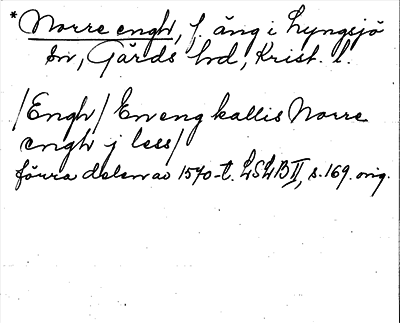 * Norre engh, f. äng i Lyngsjö
sn, Gärds hd, Krist. l.
/Engh/ En eng kallis Norre
engh j less/
förra delen av 1540-t. LSLB II, s. 169. orig.